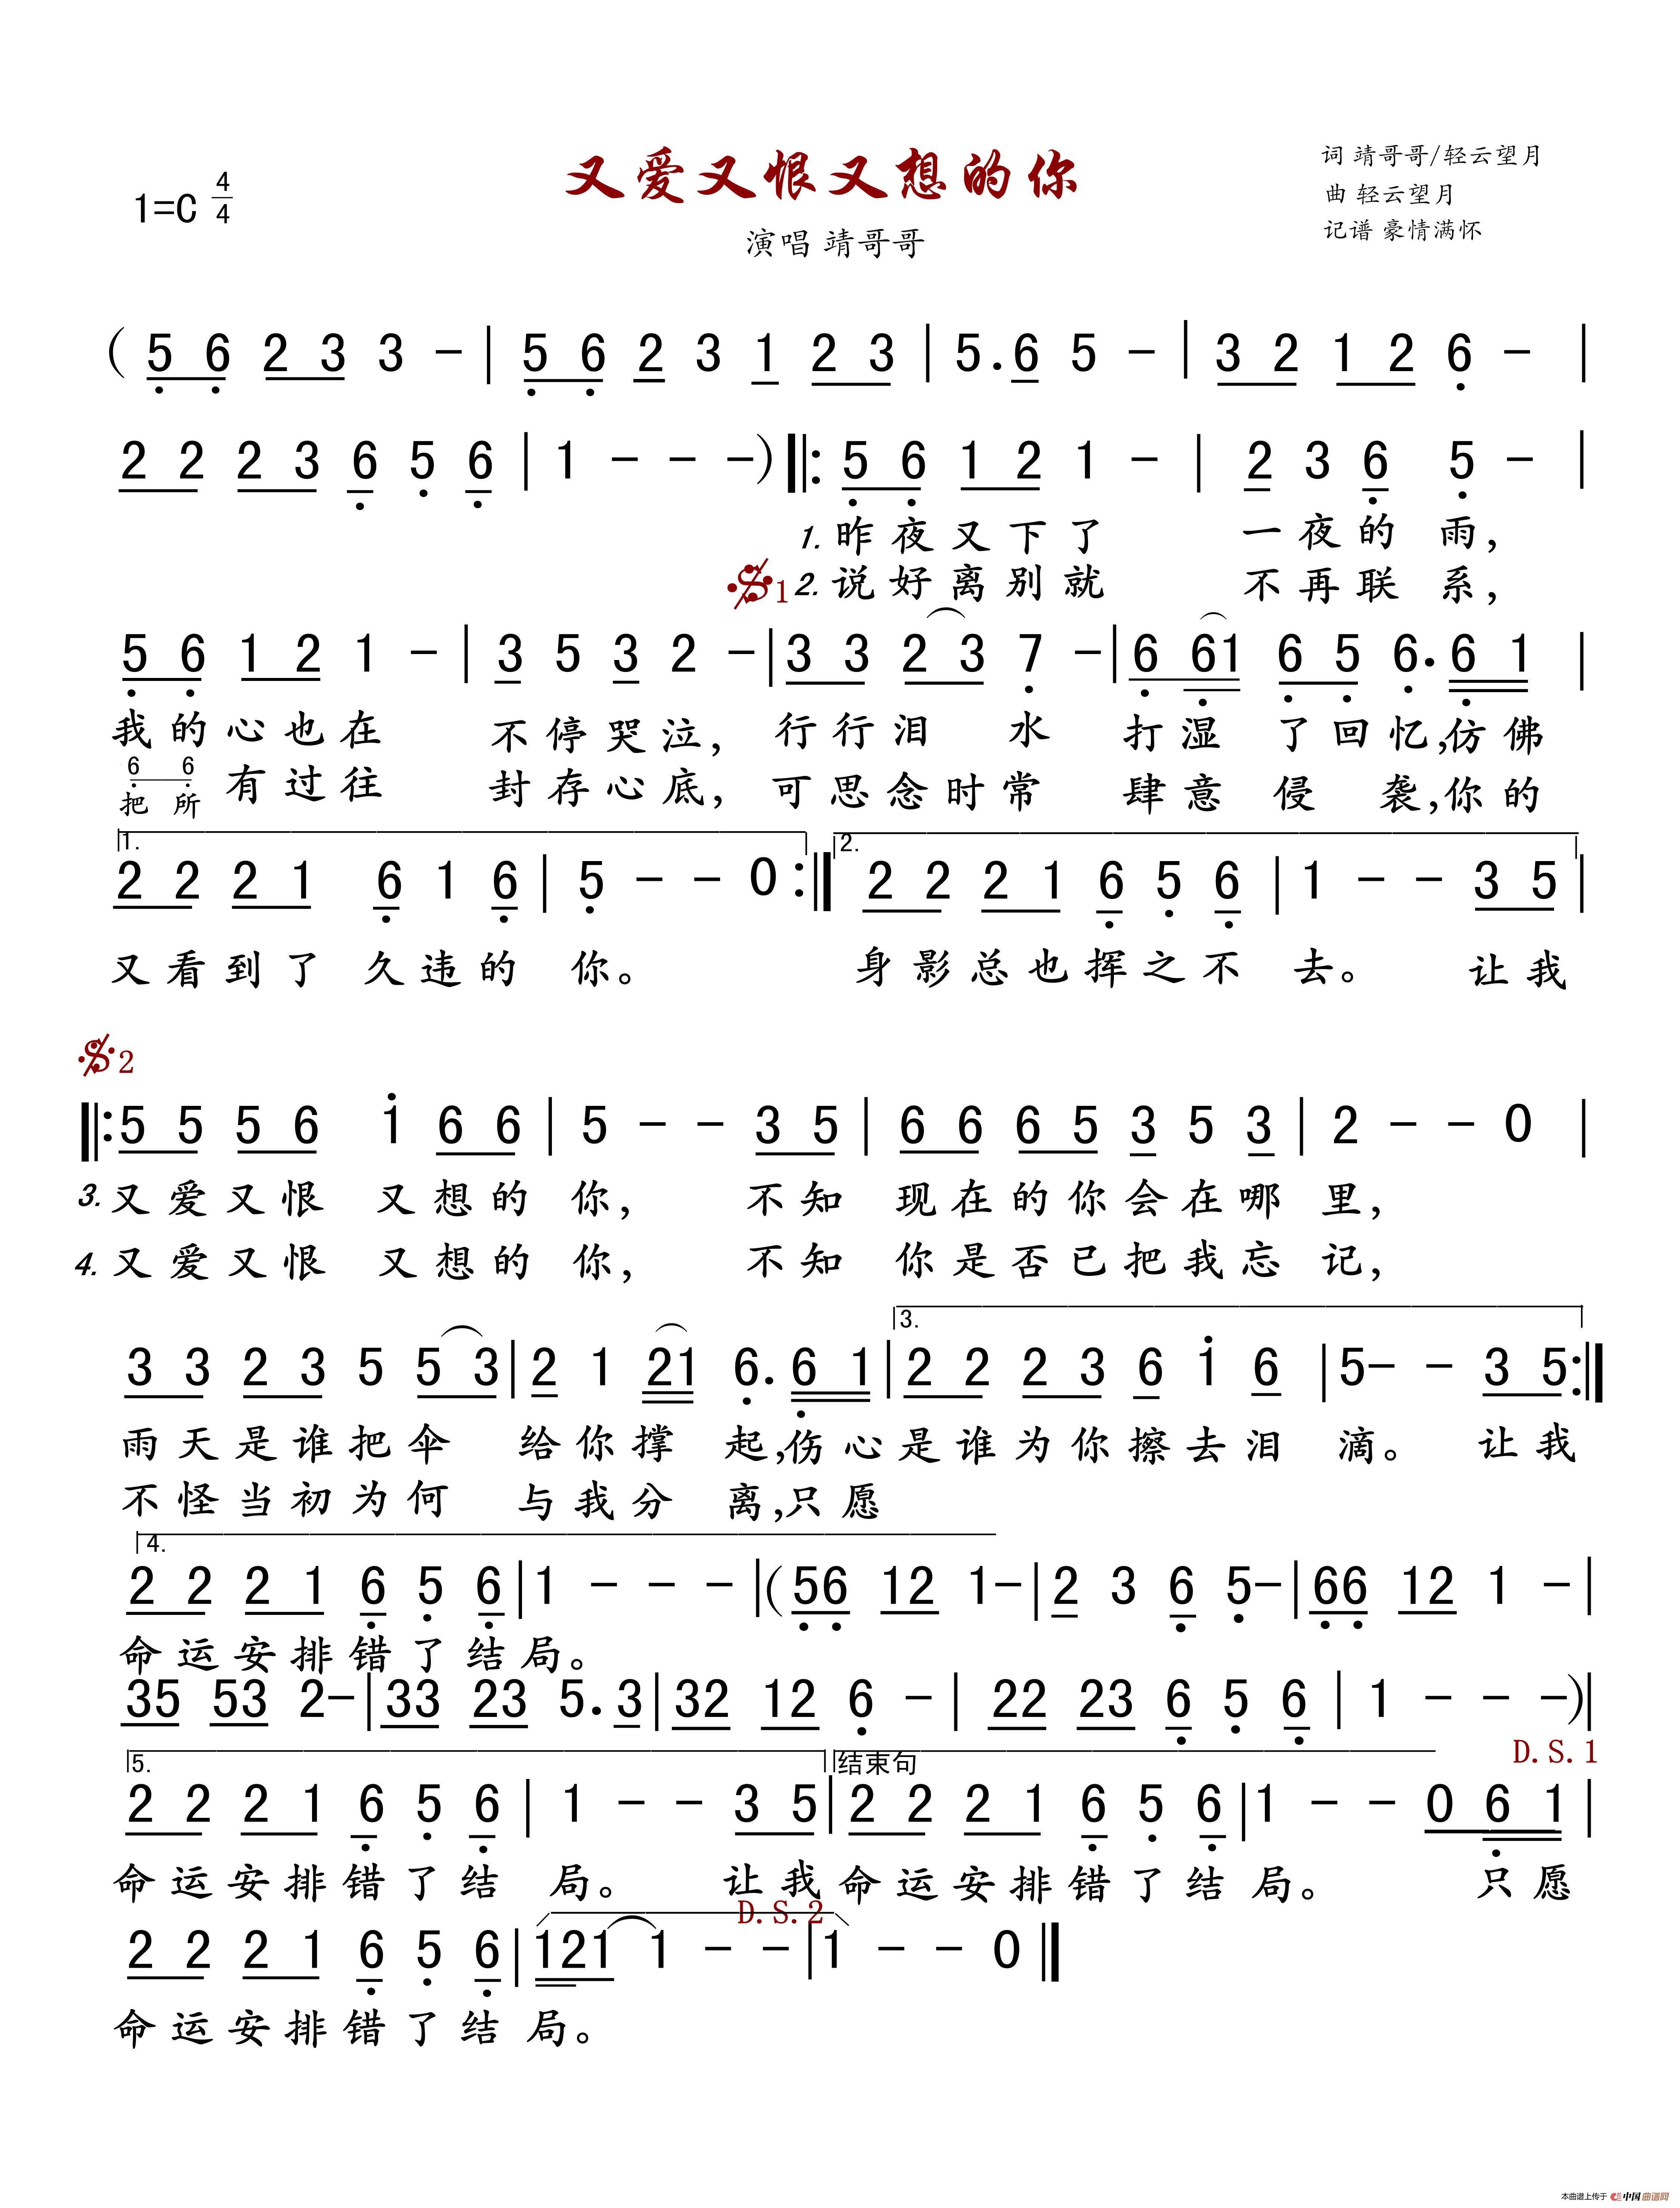 又爱又恨又想的你
1=C 4/4
演唱 靖哥哥
词 靖哥哥/轻云望月
曲 轻云望月
记谱 豪情满怀
( 5 6 2 3 3 - | 5 6 2 3 1 2 3 | 5. 6 5 - | 3 2 1 2 6 - |
2 2 2 3 6 5 6 | 1 - - - ) ‖: 5 6 1 2 1 - | 2 3 6 5 - |
1. 昨夜又下了 一夜的 雨,
𝄋1 2. 说好离别就 不再联 系,
5 6 1 2 1 - | 3 5 3 2 - | 3 3 2 3 7 - | 6 61 6 5 6. 6 1 |
我的心也在 不停哭泣, 行行泪 水 打湿 了回忆,仿佛
6 6
把所 有过往 封存心底, 可思念时常 肆意 侵 袭,你的
1. 2.
2 2 2 1 6 1 6 | 5 - - 0 :‖ 2 2 2 1 6 5 6 | 1 - - 3 5 |
又看到了 久违的 你。 身影总也挥之不 去。 让我
𝄋2
‖: 5 5 5 6 1 6 6 | 5 - - 3 5 | 6 6 6 5 3 5 3 | 2 - - 0 |
3. 又爱又恨 又想的 你, 不知 现在的你会在哪 里,
4. 又爱又恨 又想的 你, 不知 你是否已把我忘 记,
3.
3 3 2 3 5 5 3 | 2 1 21 6. 6 1 | 2 2 2 3 6 1 6 | 5 - - 3 5 :‖
雨天是谁把伞 给你撑 起,伤心是谁为你擦去泪 滴。 让我
不怪当初为何 与我分 离,只愿
4.
2 2 2 1 6 5 6 | 1 - - - | ( 56 12 1 - | 2 3 6 5 - | 66 12 1 - |
命运安排错了结局。
35 53 2 - | 33 23 5. 3 | 32 12 6 - | 22 23 6 5 6 | 1 - - - ) |
D.S.1
5. 结束句
2 2 2 1 6 5 6 | 1 - - 3 5 | 2 2 2 1 6 5 6 | 1 - - 0 6 1 |
命运安排错了结 局。 让我 命运安排错了结 局。 只愿
D.S.2
2 2 2 1 6 5 6 | 121 1 - - | 1 - - 0 ‖
命运安排错了结 局。
本曲谱上传于 中国曲谱网